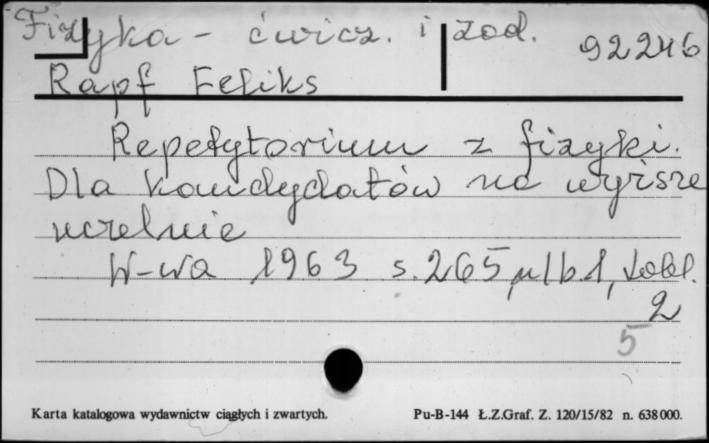 Fizyka - ćwicz. i zad. 92246
Rapf Feliks
Repetytorium z fizyki.
Dla kandydatów na wyższe
uczelnie
W-wa 1963 s. 265, nlb 1, tabl.
2
5
Karta katalogowa wydawnictw ciągłych i zwartych. Pu-B-144 Ł.Z.Graf. Z. 120/15/82 n. 638000.